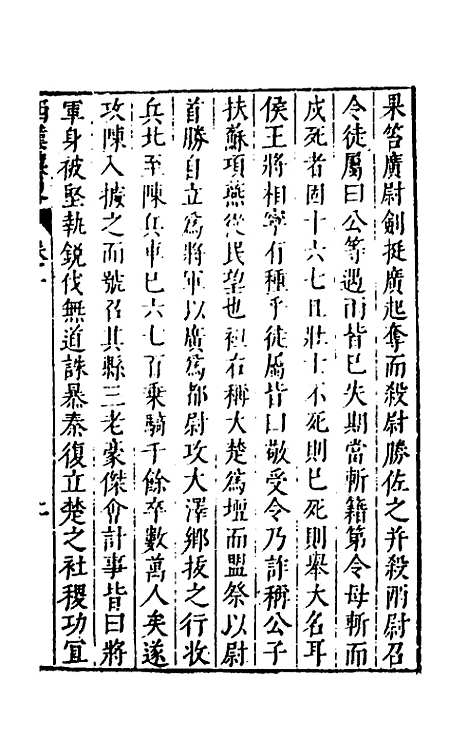 果笞廣尉劍挺廣起奪而殺尉勝佐之并殺兩尉召
令徒屬曰公等遇雨皆已失期當斬籍第令毋斬而
戍死者固十六七且壯士不死則已死則舉大名耳
侯王將相寧有種乎徒屬皆曰敬受令乃詐稱公子
扶蘇項燕從民望也袒右稱大楚爲壇而盟祭以尉
首勝自立爲將軍以廣爲都尉攻大澤鄉拔之行收
兵北至陳兵車已六七百乗騎千餘卒數萬人矣遂
攻陳入據之而號召其縣三老豪傑會計事皆曰將
軍身被堅執銳伐無道誅暴秦復立楚之社稷功宜
西漢 卷一